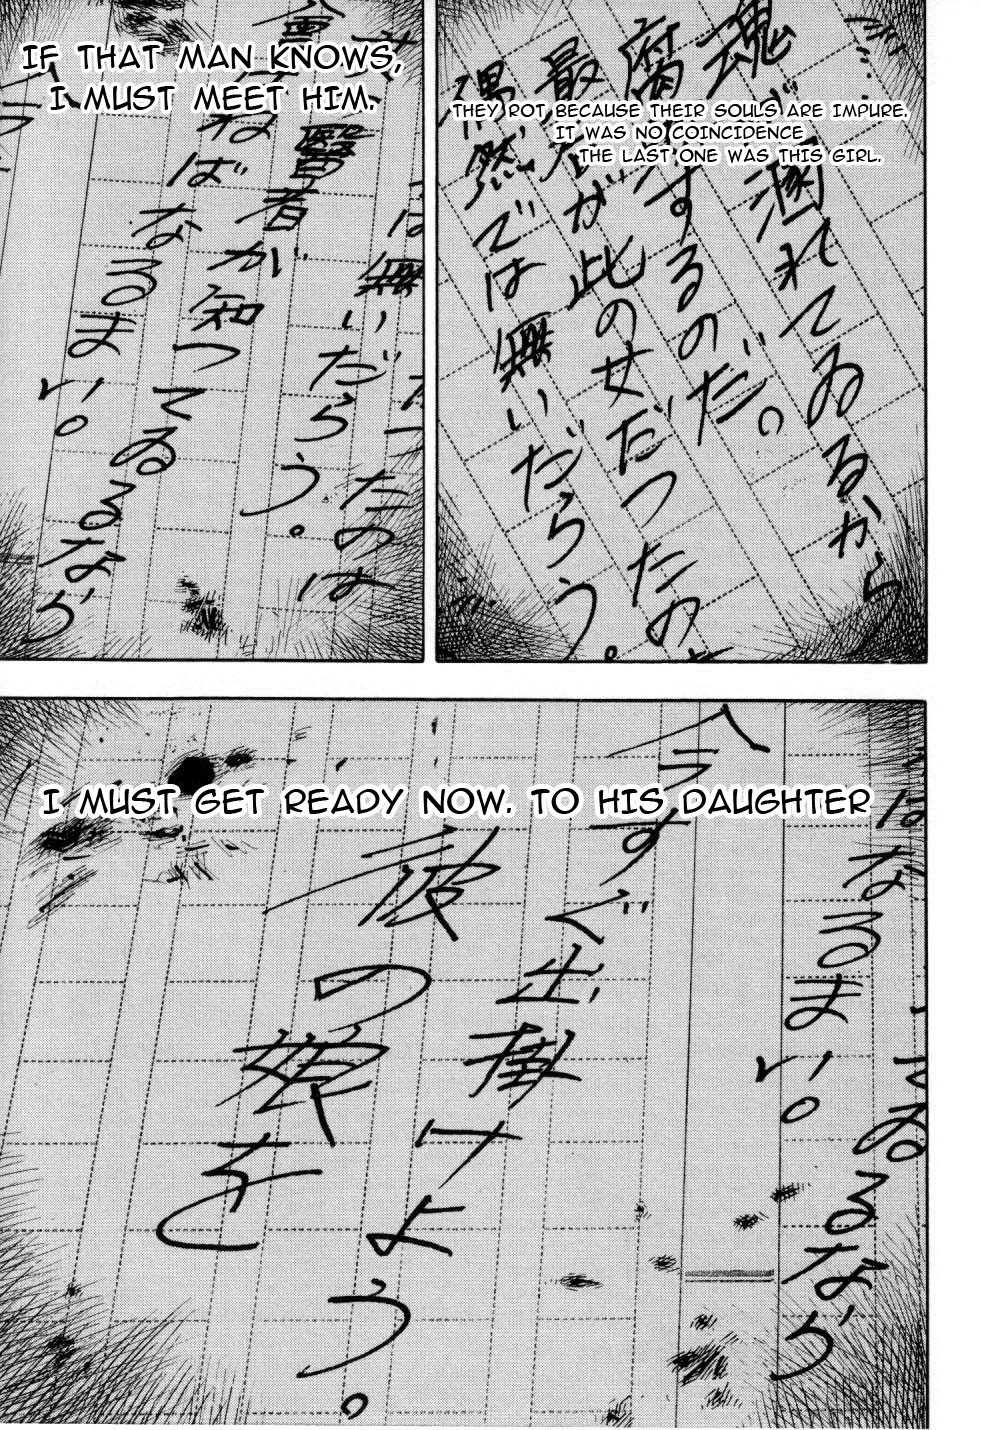 THEY ROT BECAUSE THEIR SOULS ARE IMPURE.
IT WAS NO COINCIDENCE
THE LAST ONE WAS THIS GIRL.
魂が濁れてゐるから
腐敗するのだ。
最后が此の女だつたの
偶然では無いだらう。
IF THAT MAN KNOWS,
I MUST MEET HIM.
だつたのは
は無いだらう。
醫者が知つてゐるなら
ねばなるまい。
I MUST GET READY NOW. TO HIS DAUGHTER
てゐるなら
ばなるまい。
今すぐ出掛けよう。
彼の娘を